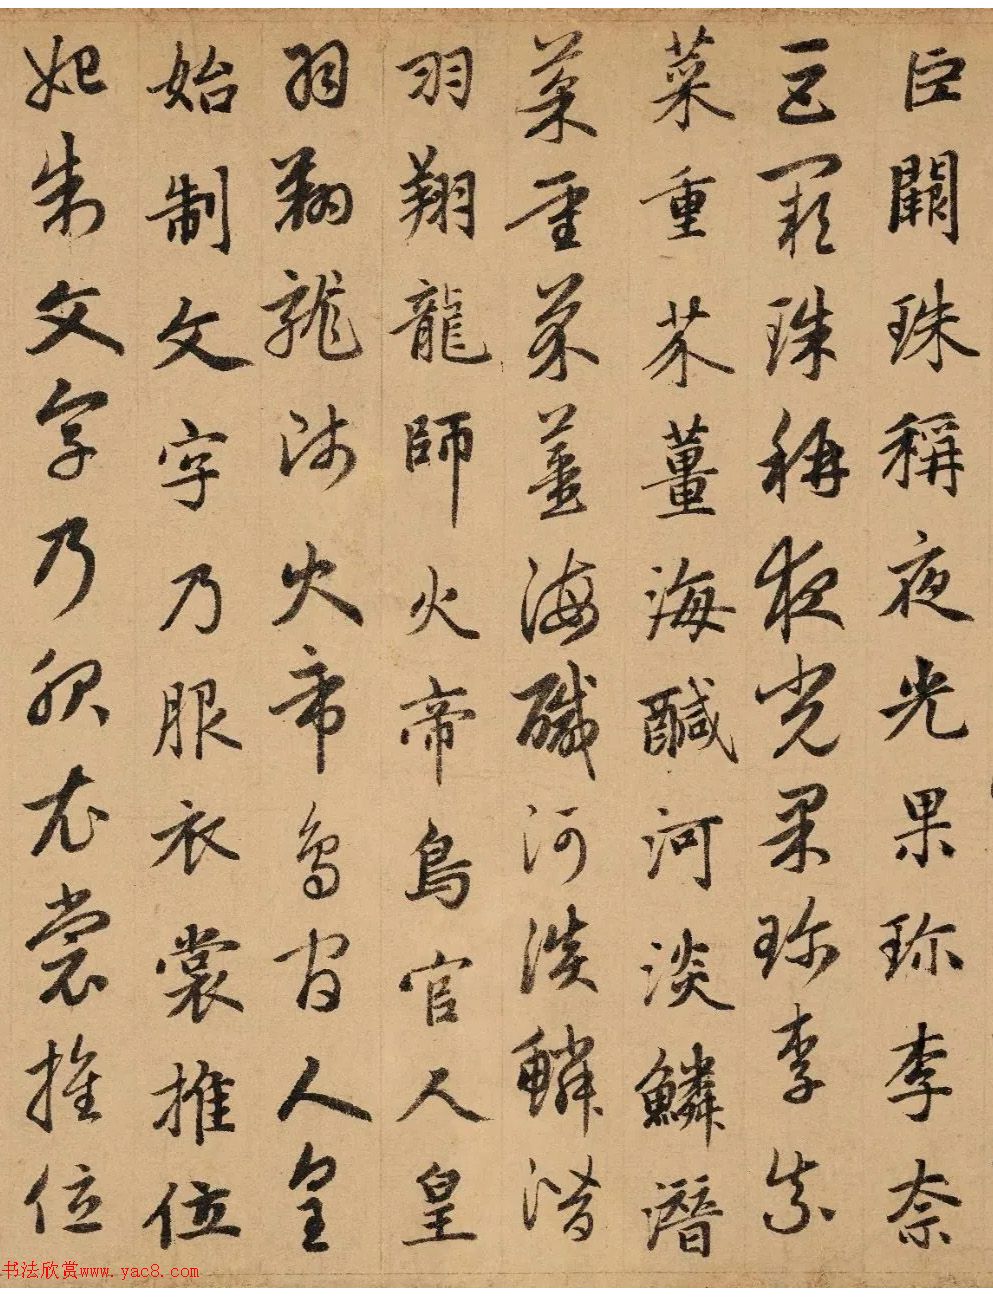 巨闕珠稱夜光果珎李柰
巨闕珠稱夜光果珎李柰
菜重芥薑海鹹河淡鱗潛
菜重芥薑海鹹河淡鱗潛
羽翔龍師火帝鳥官人皇
羽翔龍師火帝鳥官人皇
始制文字乃服衣裳推位
始制文字乃服衣裳推位
书法欣赏www.yac8.com